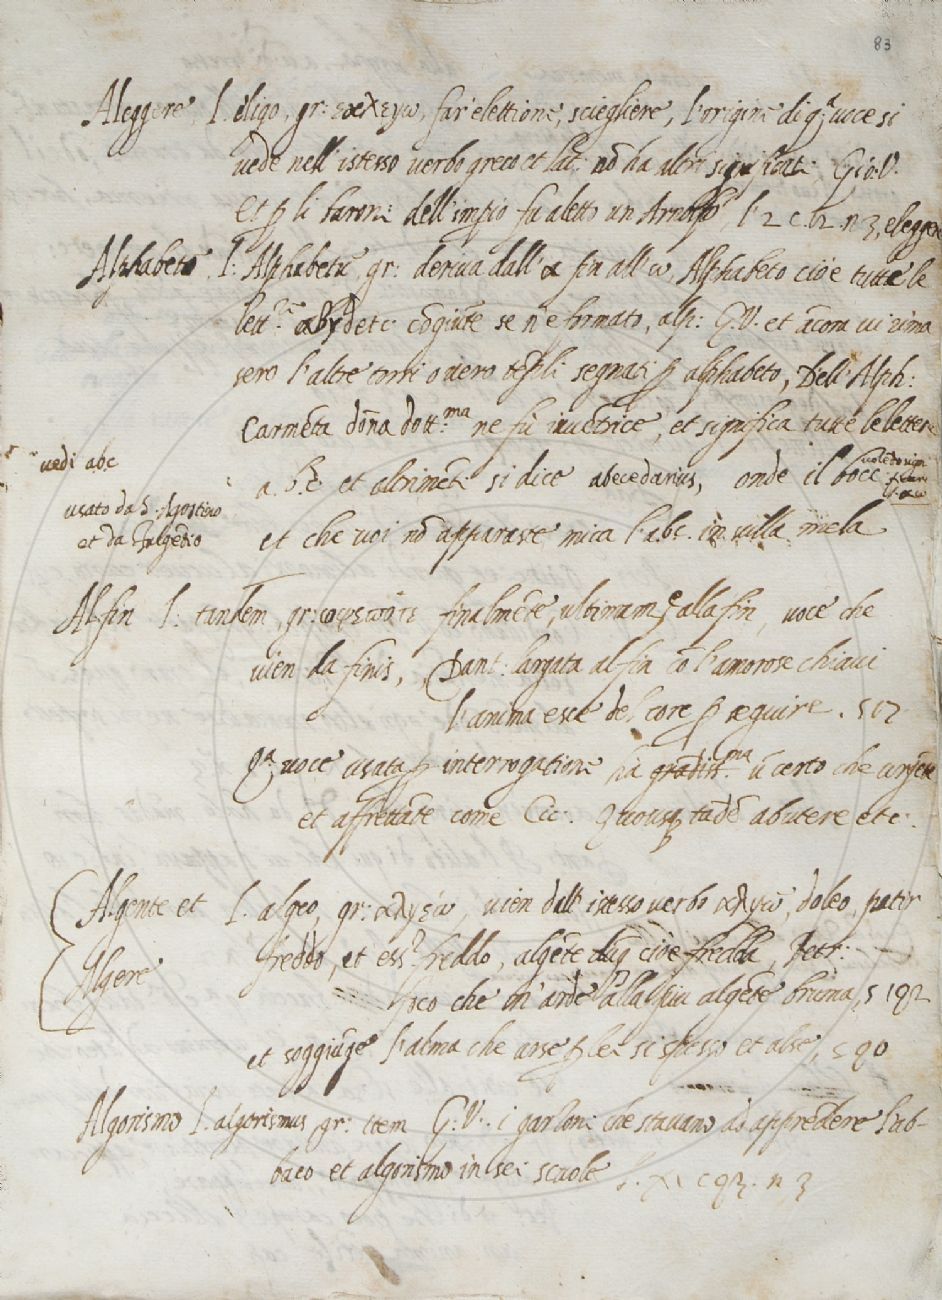 83
Aleggere, l. eligo, gr: εκλεγω, far' elettione, sciegliere, l'origine di q.ª voce si
vede nell' istesso verbo greco et lat: nō ha altri significati: Gio: V.
et li baroni dell' impio fu aletto un Arnolfo, l 2 c. 02 n 3, eleggere
Alphabeto, l: Alphabetū, gr: deriva dall' α fin all' ω, Alphabeto cioè tutte le
lett.re αβγδ etc cōgiūte se n'è formato, alp: G: V. et ācora vi rima
sero l'altre torri overo tēpli segnati ꝑ alphabeto, Dell' Alph:
Carmēta dōna dott.ma ne fù invētrice, et significa tutte le lettere
vedi abc
a. b. c et altrimēti si dice abecedarius, onde il bocc:
usato da S. Agostino
et da Fulgētio
et che voi nō apparaste mica l'abc. in villa mela
Alfin l: tandem, gr: finalmēte, ultimam.e alla fin, voce che
vien da finis, Dant: largata al fin cō l'amorose chiavi
l'anima esce del core ꝑ seguire. s 17
Q.ª voce usata ꝑ interrogatione hà grādiss.ma certo che
et affrettāte come Cic: Quousq tādē abutere etc:
Algente et l. algeo, gr: αλγεω, vien dall' istesso verbo αλγω, doleo, patir
Algere
freddo, et ess.r freddo, algēte cioè fredda, Petr:
foco che m'arde alla più algēte bruma, s 192
et soggiūge l'alma che arse ꝑ lei si spesso et alse, s 90
Algorismo l. algorismus, gr: item G: V.. i garzoni che stavano ad apprēdere l'ab-
baco et algorismo in sei scuole l. XI c 93. n 3